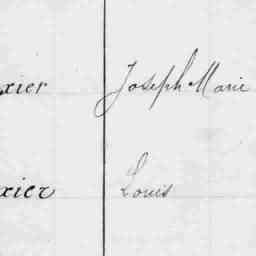 xier Joseph Marie
xier Louis